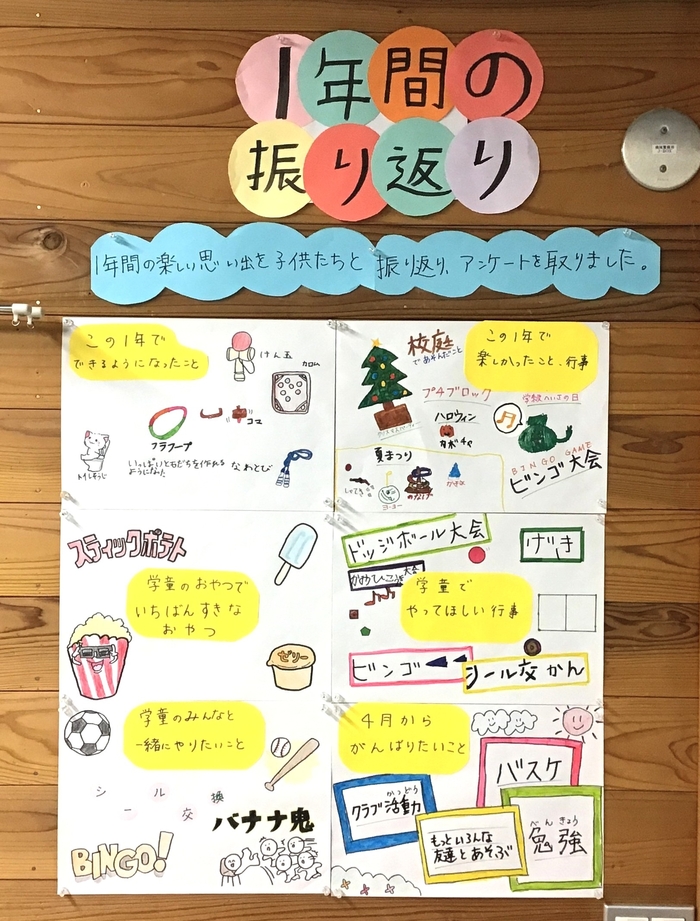 1年間の
振り返り
1年間の楽しい思い出を子供たちと振り返り、アンケートを取りました。
この1年で
できるようになったこと
けん玉
カロム
コマ
フラフープ
トイレそうじ
いっぱいともだちを作れる
ようになった
なわとび
校庭
であそんだこと
この1年で
楽しかったこと、行事
プチブロック
ハロウィン
カボチャ
BINGO GAME
ビンゴ大会
夏まつり
しゃてき
ヨーヨー
わなげ
かき氷
スティックポテト
学童のおやつで
いちばんすきな
おやつ
ゼリー
ドッジボール大会
げき
大会
学童で
やってほしい行事
ビンゴ
シール交かん
学童のみんなと
一緒にやりたいこと
シール交換
バナナ鬼
BINGO!
4月から
がんばりたいこと
バスケ
かつどう
クラブ活動
もっといろんな
友達とあそぶ
べんきょう
勉強